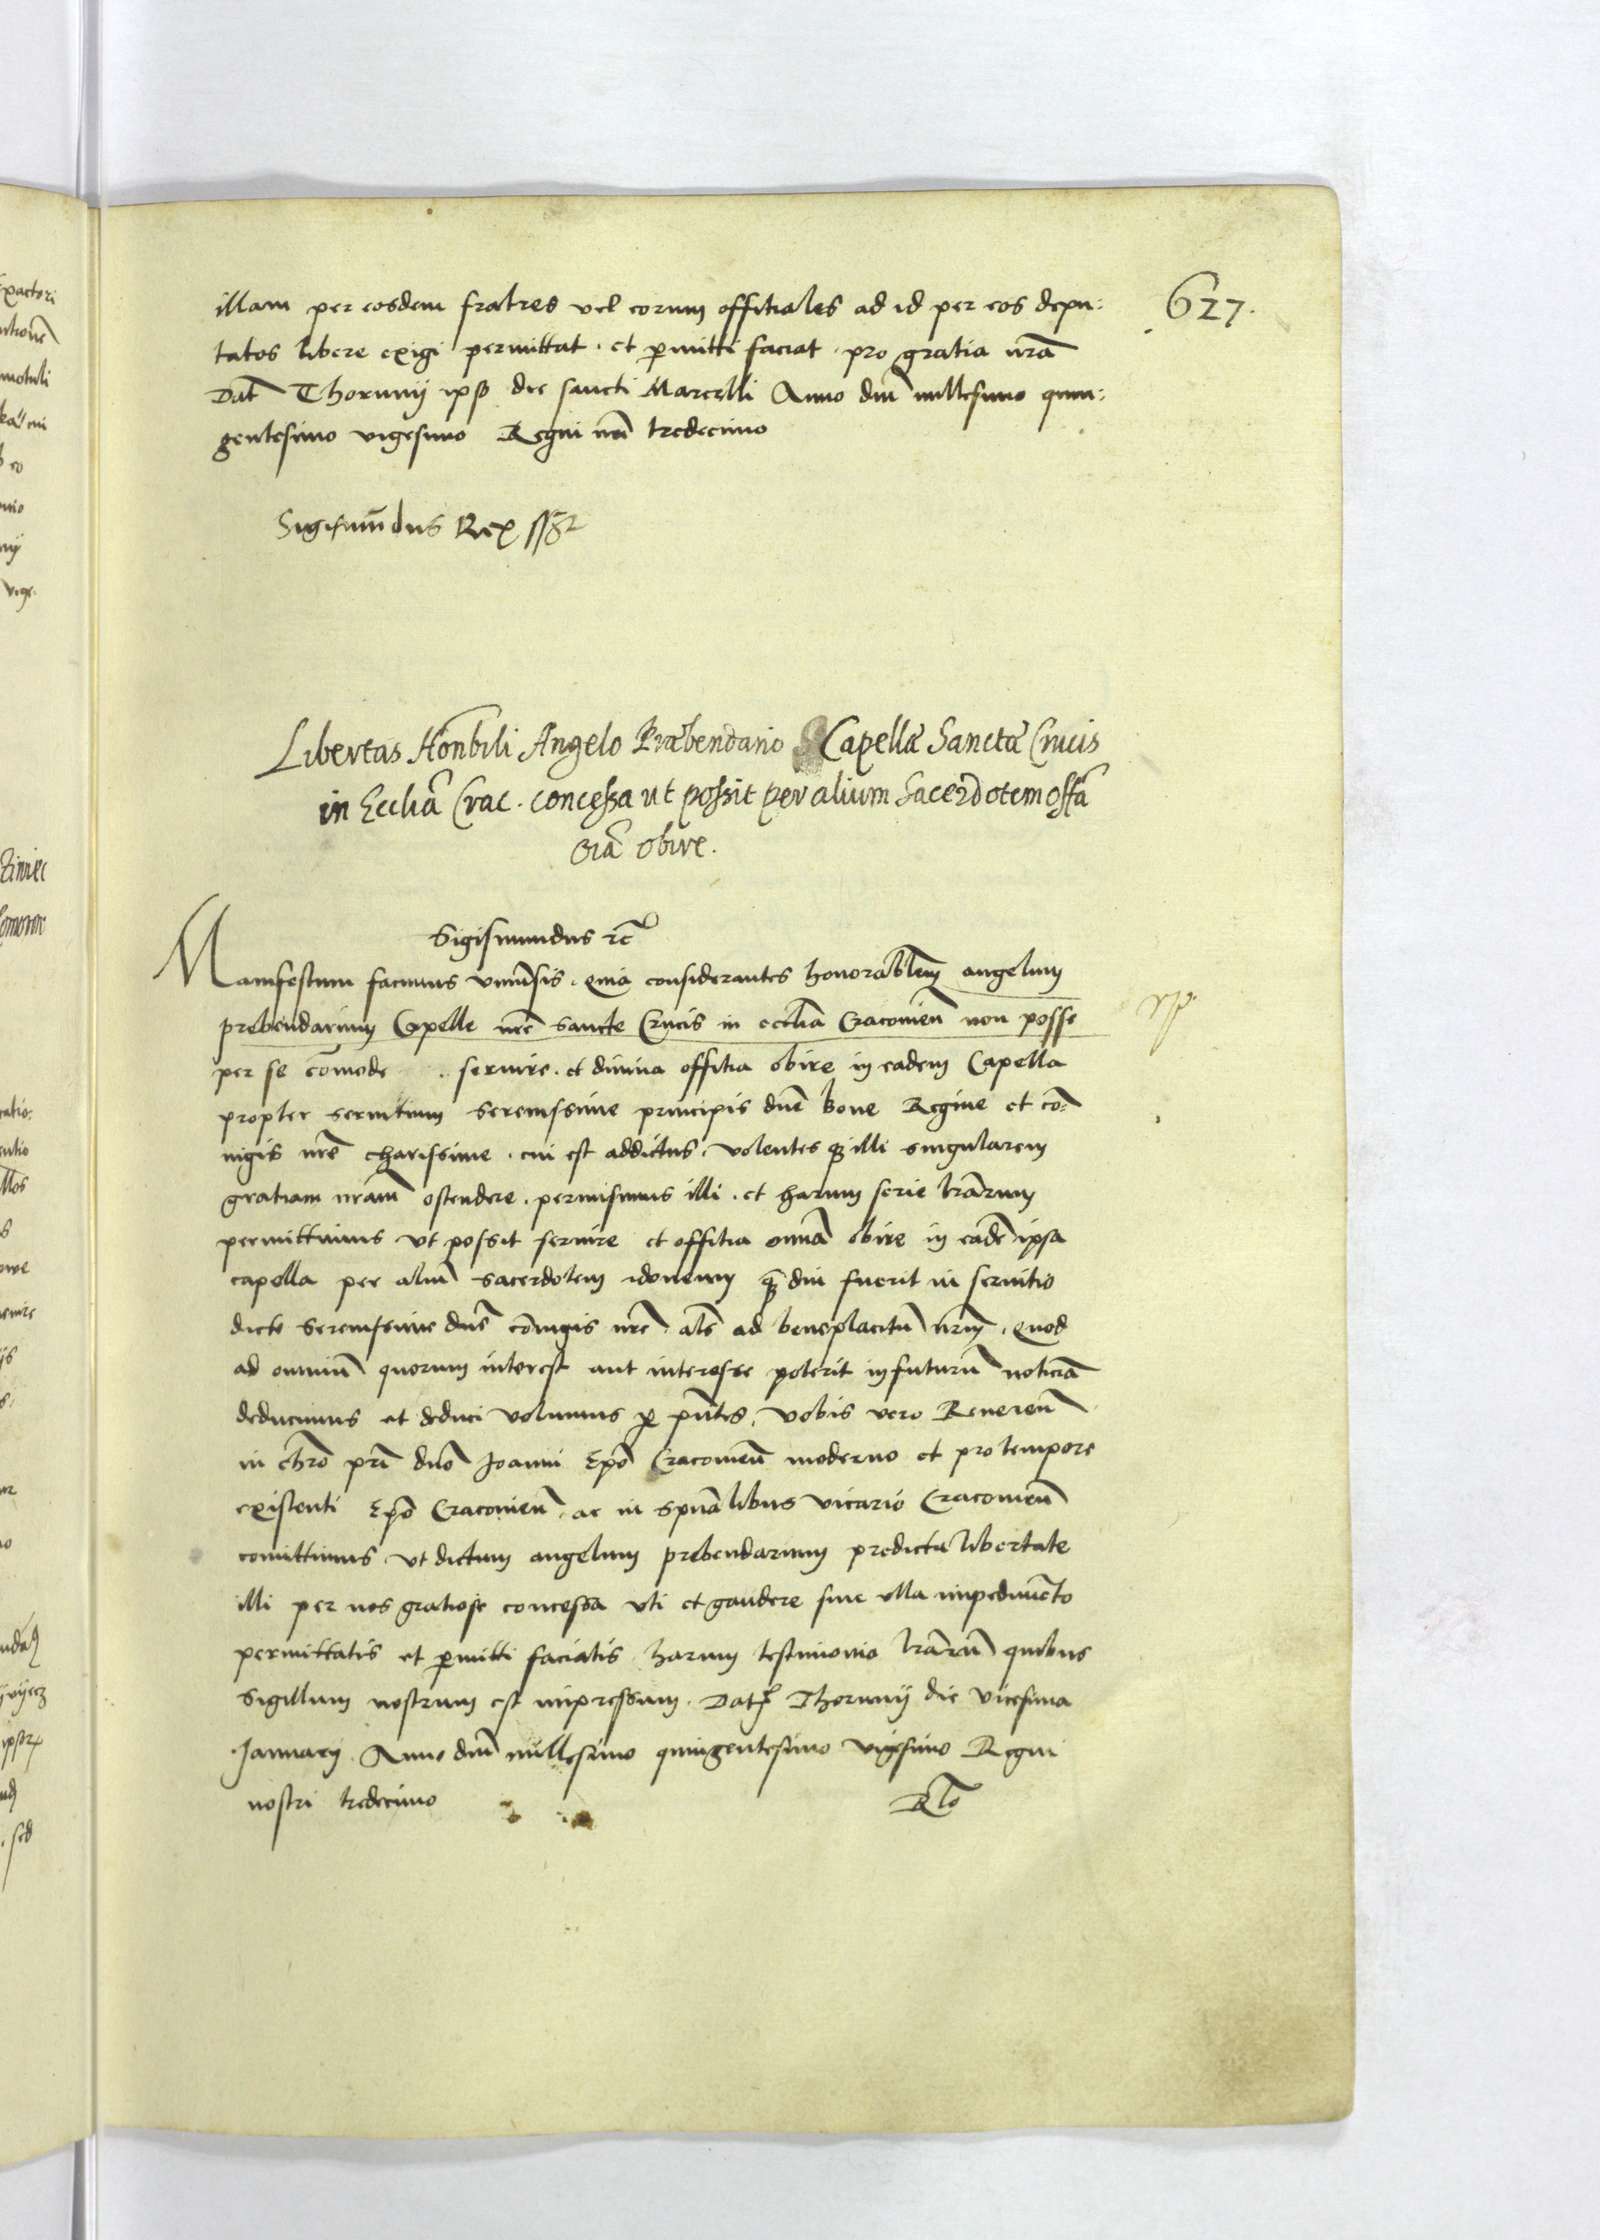 627.
illam per eosdem fratres vel eorum offitiales ad id per eos depu:
tatos libere exigi permittat. et pmitti faciat. pro gratia nrã
Datũ Thorunij ipso die sancti Marcelli Anno dnĩ millesimo quin:
gentesimo vigesimo Regni nrĩ tredecimo
Sigismũdus Rex sst
Libertas Honbili Angelo Præbendario Capellæ Sanctæ Crucis
in Ecclã Crac. concessa ut possit per alium Sacerdotem offã
Oĩa obire.
Sigismundus rc̃
Manifestum facimus vniũsis. Quia considerantes honorabilem angelum
prebendarium Capelle nrẽ sancte Crucis in ecclia Cracovieñ non posse
per se cõmode . servire. et divina offitia obire in eadem Capella
propter servitium serenissime principis dnẽ Bone Regine et cõ-
iugis nrẽ charissime. cui est addictus. volentesq illi singularem
gratiam nrãm ostendere. permisimus illi. et harum serie lrãrum
permittimus vt possit servire et offitia omniã obire in eadẽ ipsa
capella per aliũ sacerdotem idoneum q̃ diu fuerit in servitio
dicte serenissime dnẽ cõiugis nrẽ. als ad beneplacitũ nrm̃. Quod
ad omniũ quorum interest aut interesse poterit in futurũ noticiã
deducimus et deduci volumus p pñtes. vobis vero Revereñ
in chrõ pri dnõ Joanni Epõ Cracovieñ moderno et pro tempore
existenti Epõ Cracovieñ. ac in spũalibus vicario Cracovieñ
comittimus. vt dictum angelum prebendarium predicta libertate
illi per nos gratiose concessa vti et gaudere sine ulla impedimẽto
permittatis et pmitti faciatis. harum testimonio lrãrũ quibus
sigillum nostrum est impressum. Datũ Thorunij die vicesima
Januarij. Anno dnĩ millesimo quingentesimo vigesimo Regni
nostri tredecimo
Rlõ